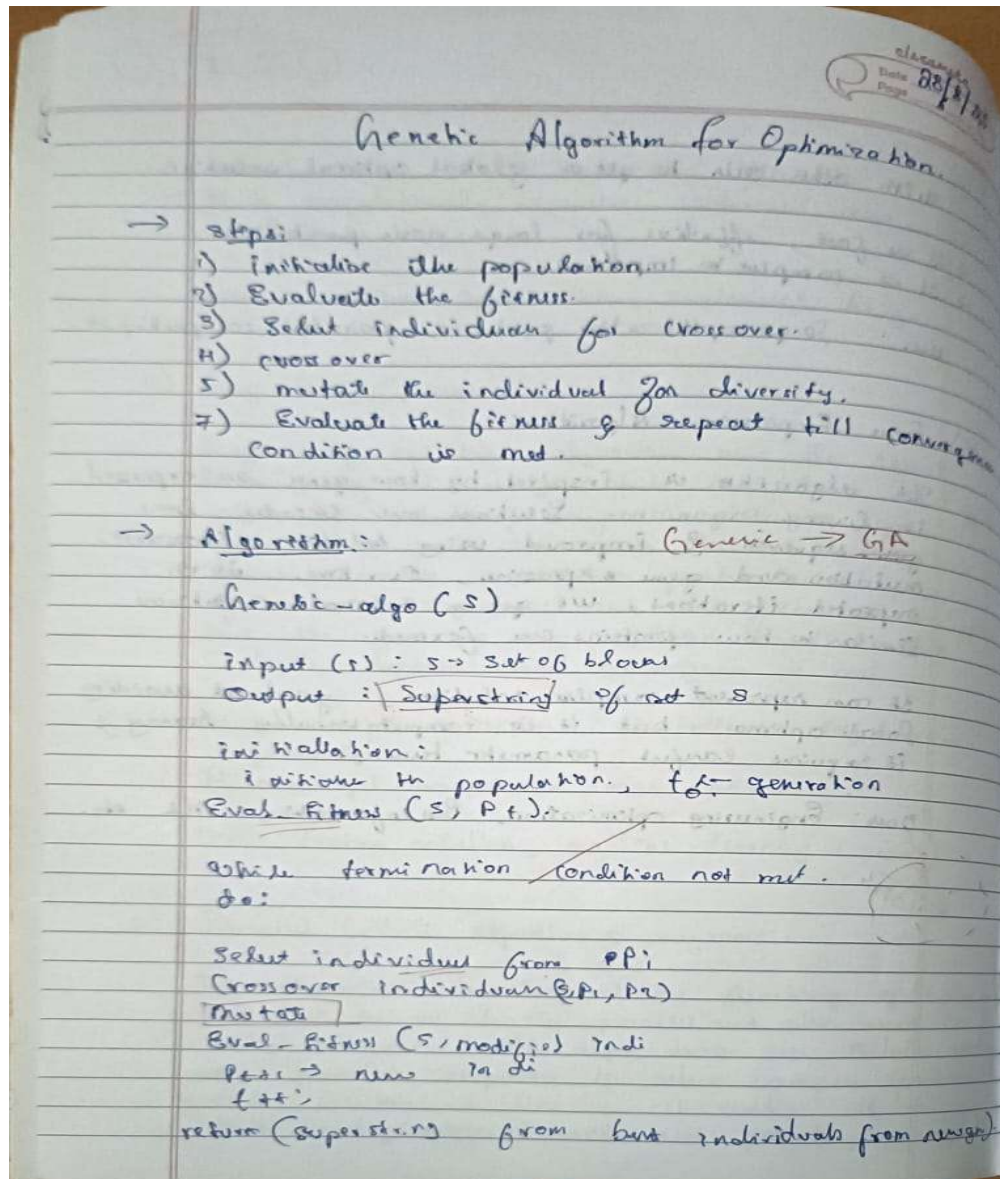 classmate
Date 28/8/
Page
Genetic Algorithm for Optimization.
→ Steps:
1) initialise the population
2) Evaluate the fitness.
3) Select individuals for crossover.
4) crossover
5) mutate the individual for diversity.
7) Evaluate the fitness & repeat till convergence
condition is met.
→ Algorithm: Generic → GA
Genetic-algo (S)
input (s) : s → set of blocks
Output : Superstring of set S
initialisation:
the population., t ← generation
Eval_fitness (S, Pt).
while termination condition not met.
do:
Select individuals from Pi
Crossover individual (S, P1, P2)
mutate
Eval-fitness (S, modified) indi
Pt+1 → new indi
t++;
return (superstring from best individuals from newgen)